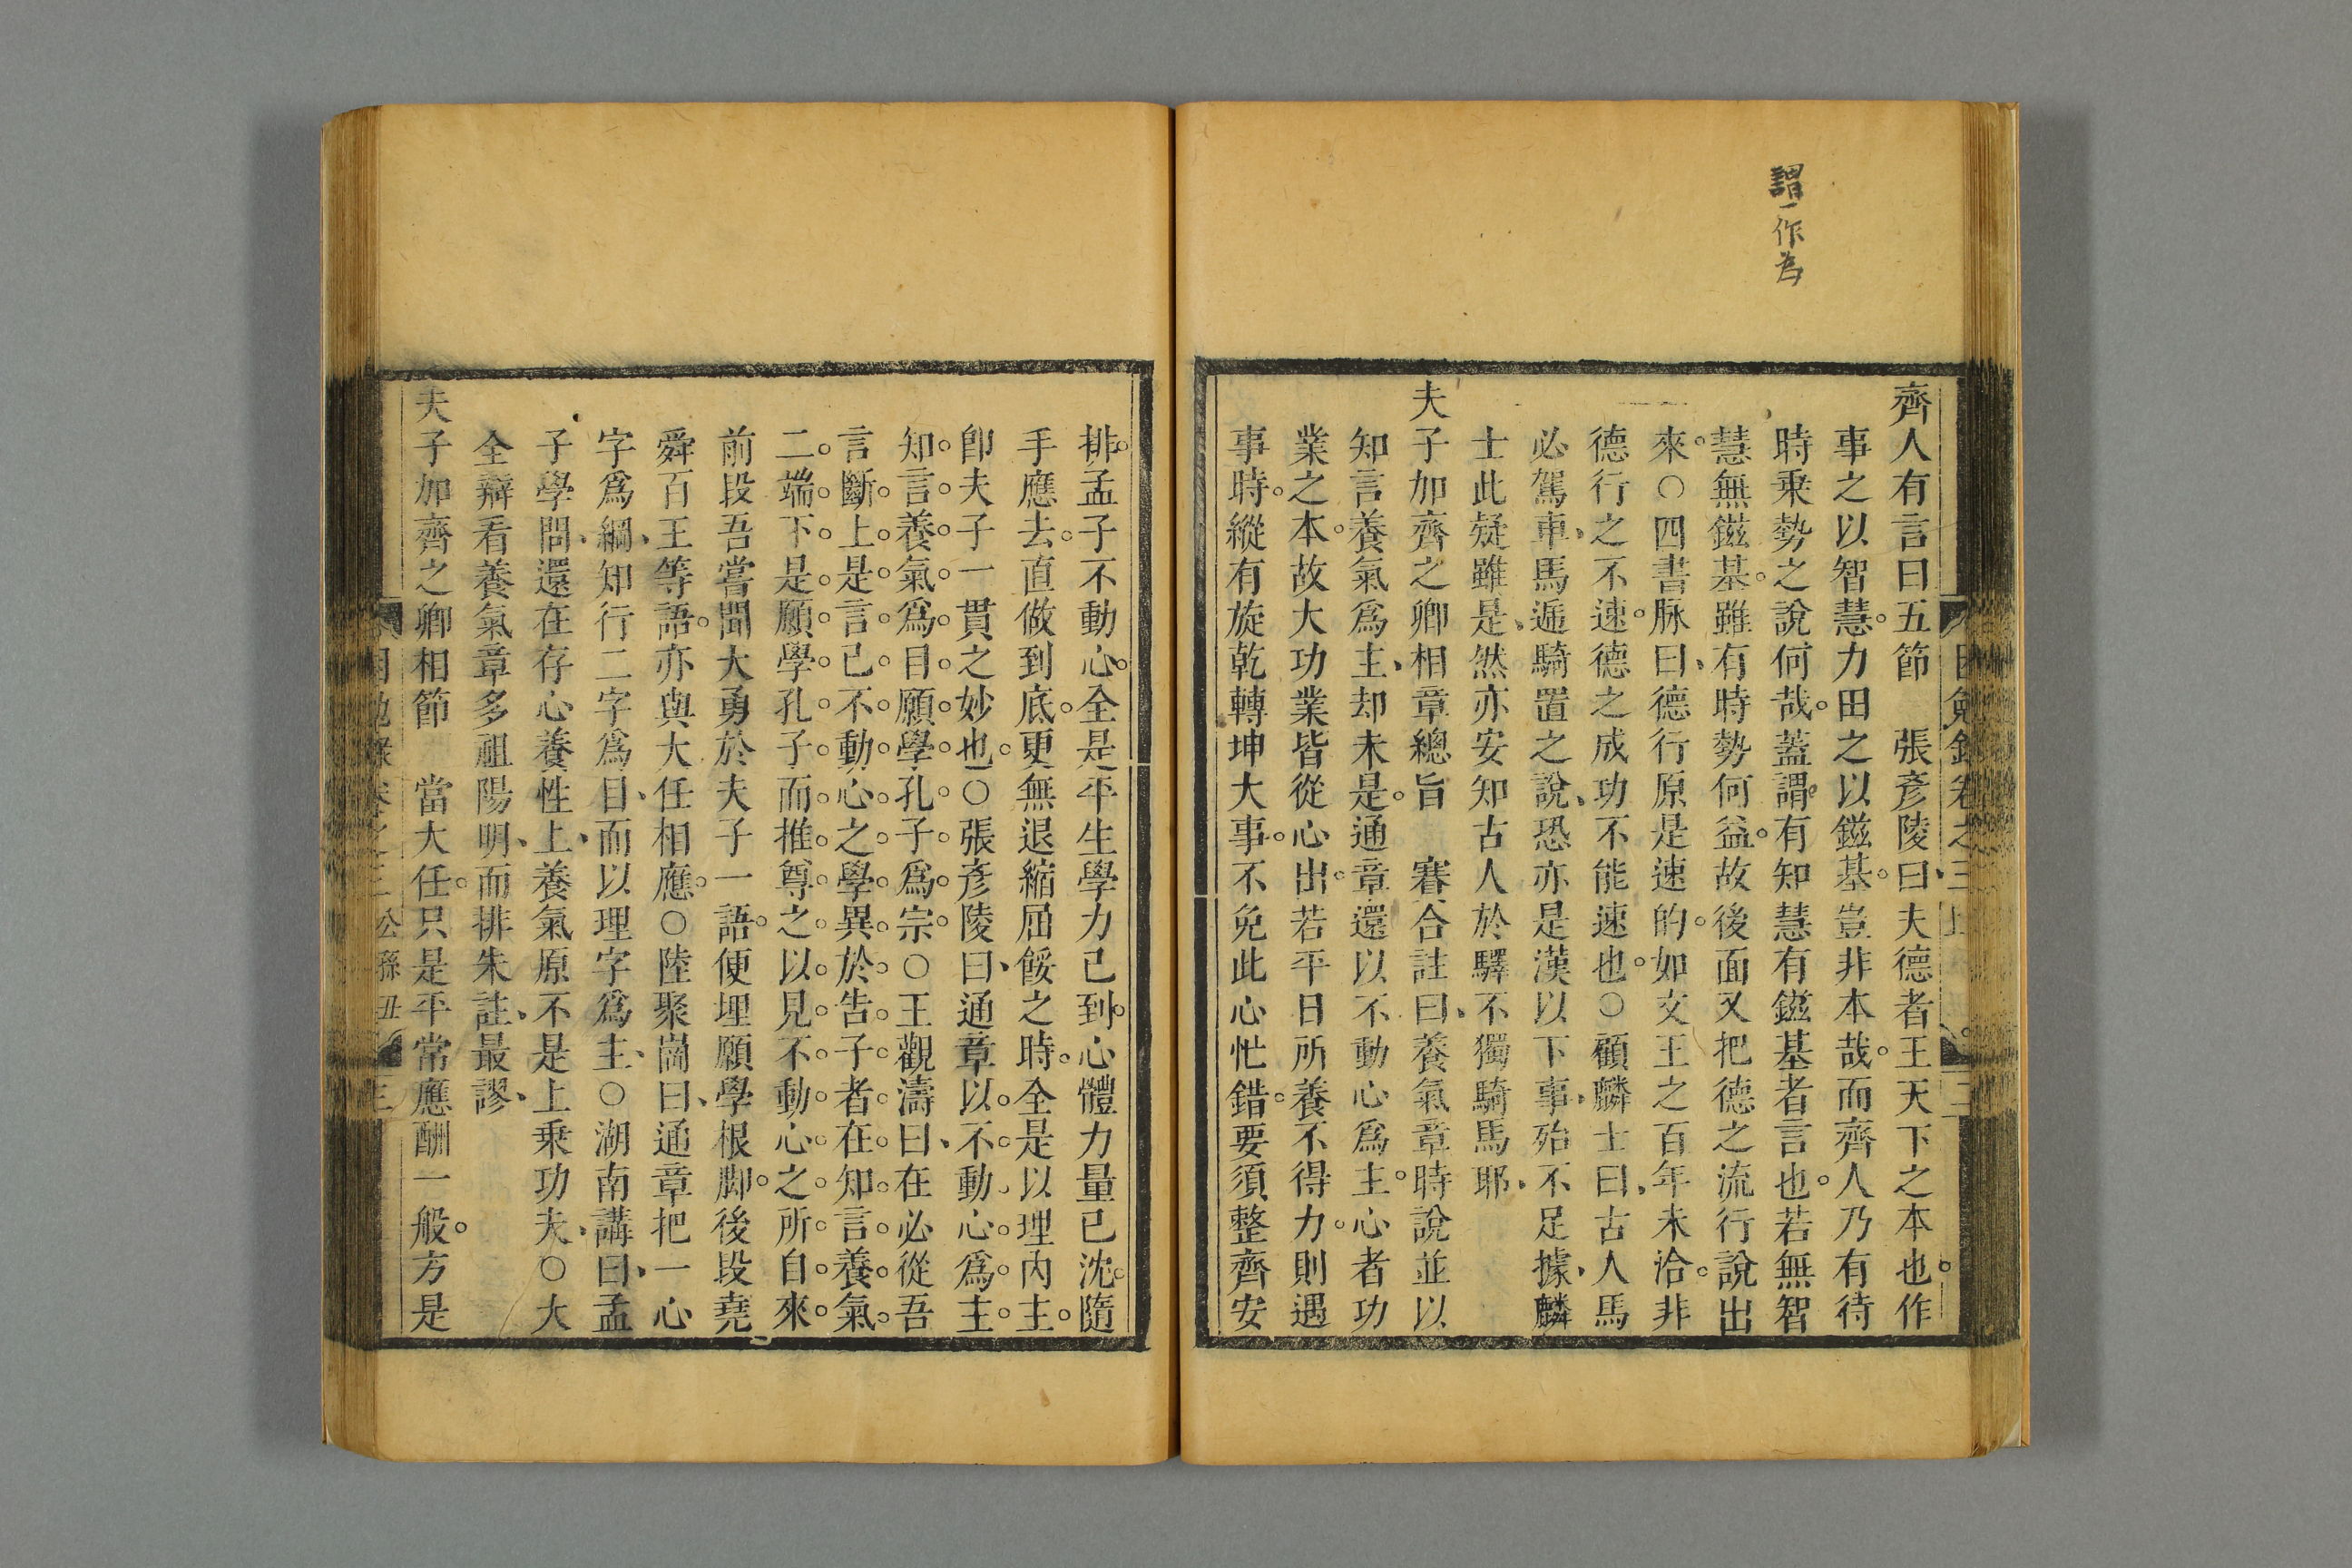 謂一作為
齊人有言曰五節　張彥陵曰夫德者王天下之本也作
事之以智慧力田之以鎡基豈非本哉而齊人乃有待
時乗勢之說何哉蓋謂有知慧有鎡基者言也若無智
慧無鎡基雖有時勢何益故後面又把德之流行說出
來○四書脉曰德行原是速的如文王之百年未洽非
德行之不速德之成功不能速也○顧麟士曰古人馬
必駕車馬遞騎置之說恐亦是漢以下事殆不足據麟
士此疑雖是然亦安知古人於驛不獨騎馬耶
夫子加齊之卿相章總旨　賽合註曰養氣章時說並以
知言養氣爲主却未是通章還以不動心爲主心者功
業之本故大功業皆從心出若平日所養不得力則遇
事時縱有旋乾轉坤大事不免此心忙錯要須整齊安
排孟子不動心全是平生學力已到心體力量已沈隨
手應去直做到底更無退縮屈餒之時全是以理內主
卽夫子一貫之妙也○張彥陵曰通章以不動心爲主
知言養氣爲目願學孔子爲宗○王觀濤曰在必從吾
言斷上是言已不動心之學異於告子者在知言養氣
二端下是願學孔子而推尊之以見不動心之所自來
前段吾嘗聞大勇於夫子一語便埋願學根脚後段堯
舜百王等語亦與大任相應○陸聚崗曰通章把一心
字爲綱知行二字爲目而以理字爲主○湖南講曰孟
子學問還在存心養性上養氣原不是上乗功夫○大
全辯看養氣章多祖陽明而排朱註最謬
夫子加齊之卿相節　當大任只是平常應酬一般方是
公孫丑